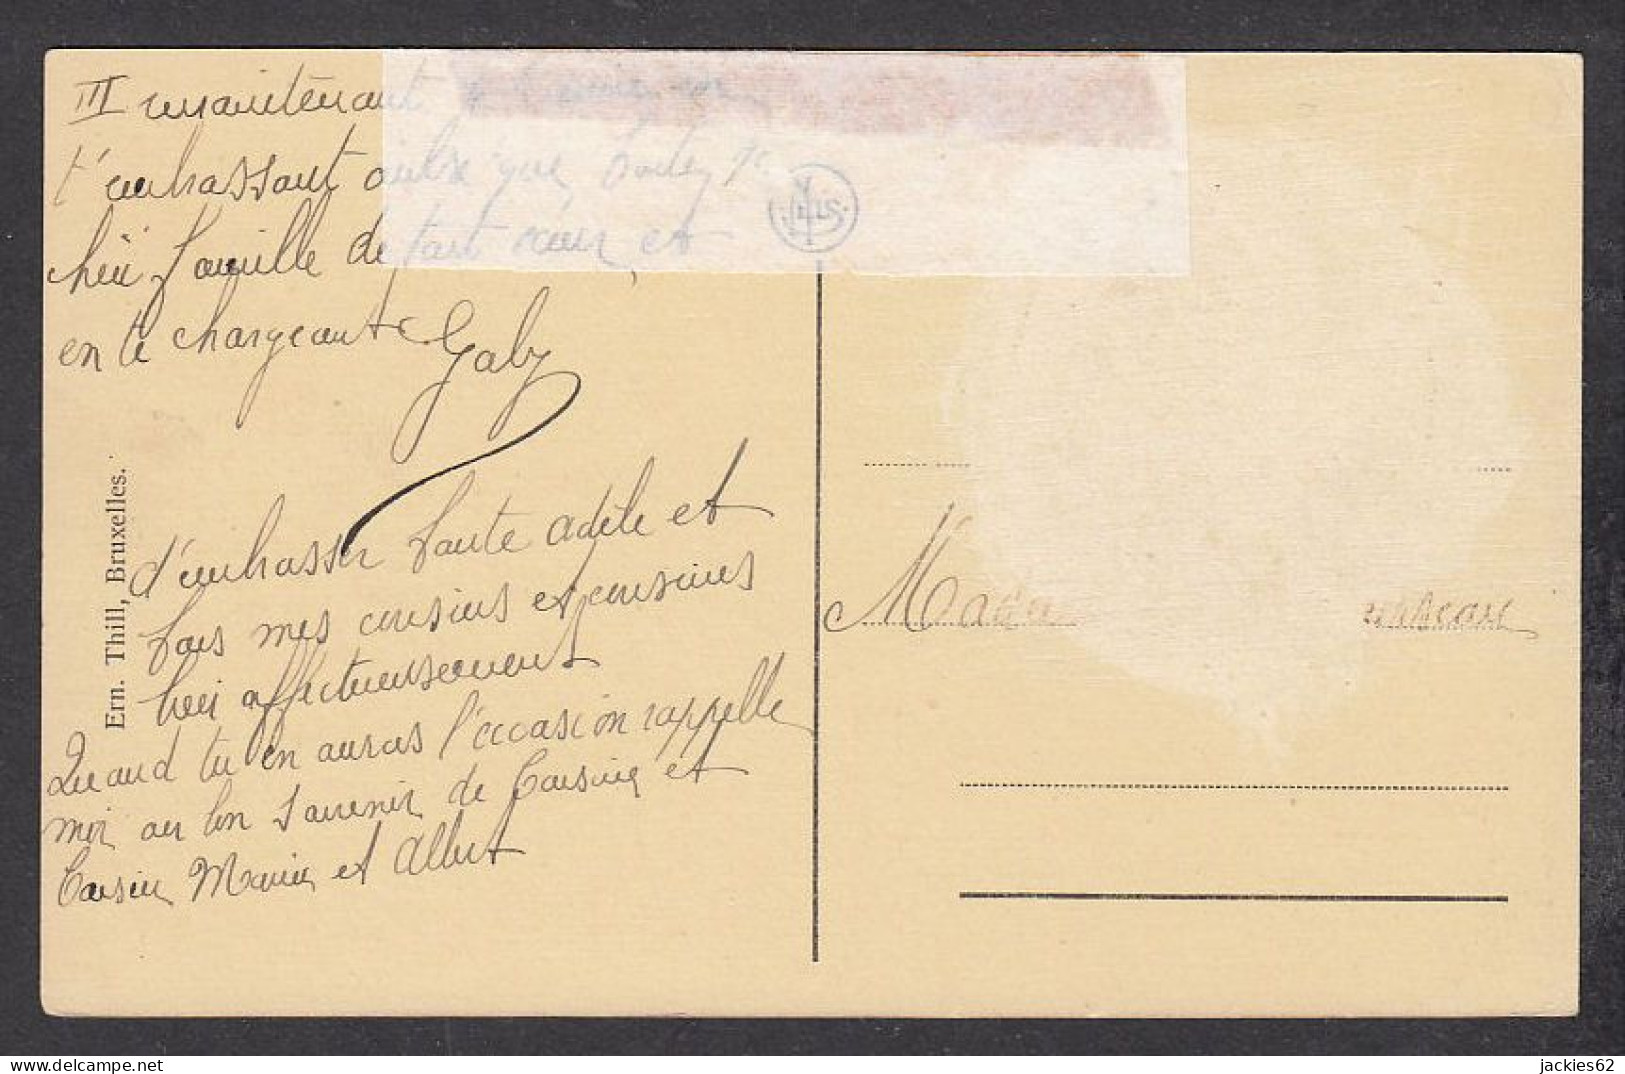 III maintenant
t'embrassant ainsi que toute
chère famille de tout cœur et
en te chargeant Gaby
d'embrasser tante adèle et
tous mes cousins et cousines
bien affectueusement
Quand tu en auras l'occasion rappelle
moi au bon souvenir de Cousine et
Cousin Marie et Albert
Ern. Thill, Bruxelles.
NELS
jackies62